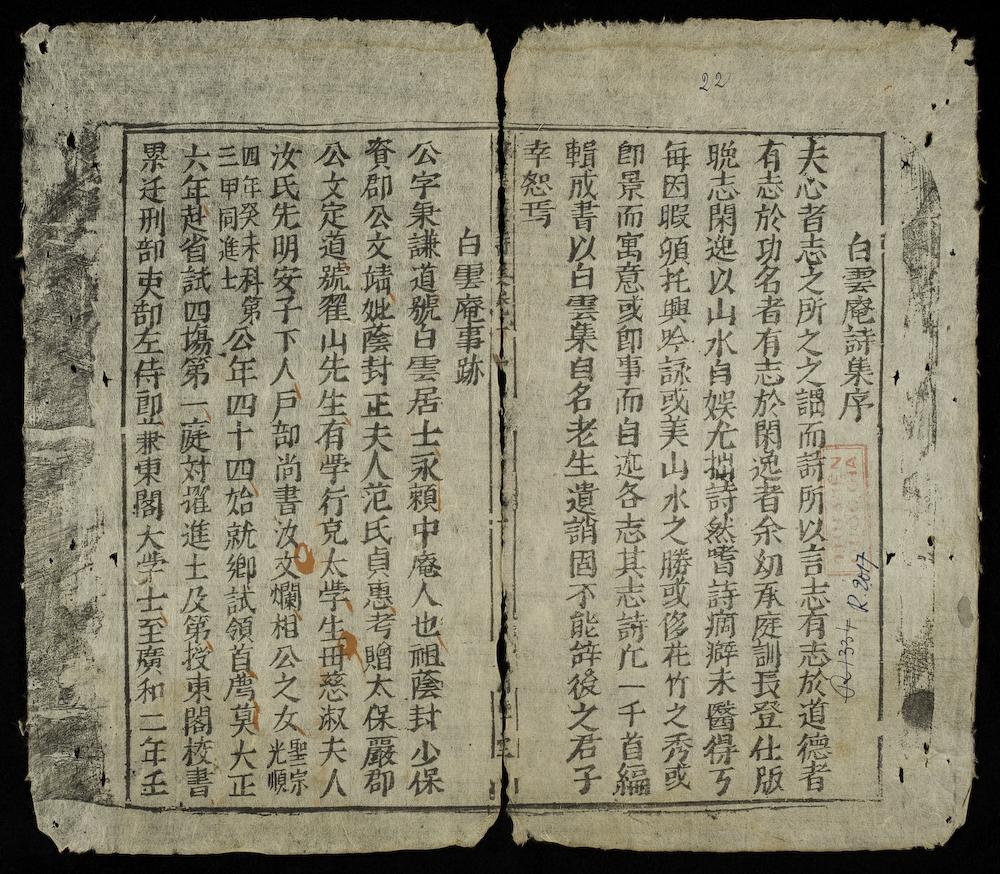 22
白雲庵詩集序
夫心者志之所之之謂而詩所以言志有志於道德者
有志於功名者有志於閑逸者余幼承庭訓長登仕版
晚志閑逸以山水自娛尤拙詩然嗜詩病癖未醫得丂
每因暇頒托興吟詠或美山水之勝或侈花竹之秀或
卽景而寓意或卽事而自述各志其志詩凢一千首編
輯成書以白雲集自名老生遺誚固不能辞後之君子
幸恕焉
白雲庵事跡
公字秉謙道號白雲居士永賴中庵人也祖蔭封少保
郡公文靖妣蔭封正夫人范氏貞惠考贈太保嚴郡
公文定道號翟山先生有學行克太學生毌慈淑夫人
汝氏先明安子下人戶部尚書汝文爛相公之女聖宗光順
四年癸未科第三甲同進士公年四十四始就鄉試領首薦莫大正
六年赴省試四塲第一庭対擢進士及第授東閣校書
累迁刑部吏部左侍郎兼東閣大学士至廣和二年壬
R.1334 R.2017